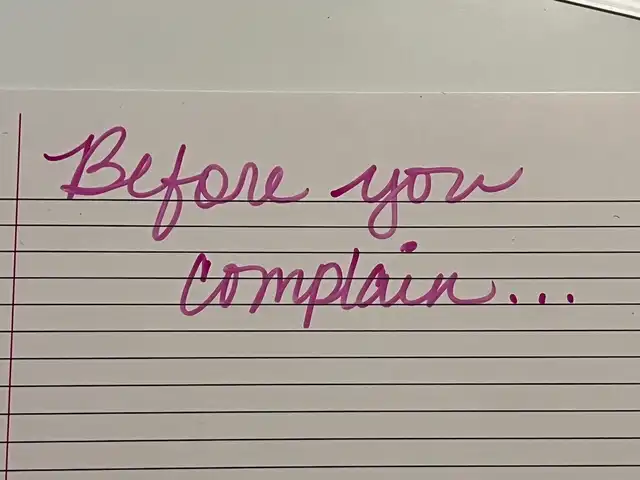 Before you
complain...